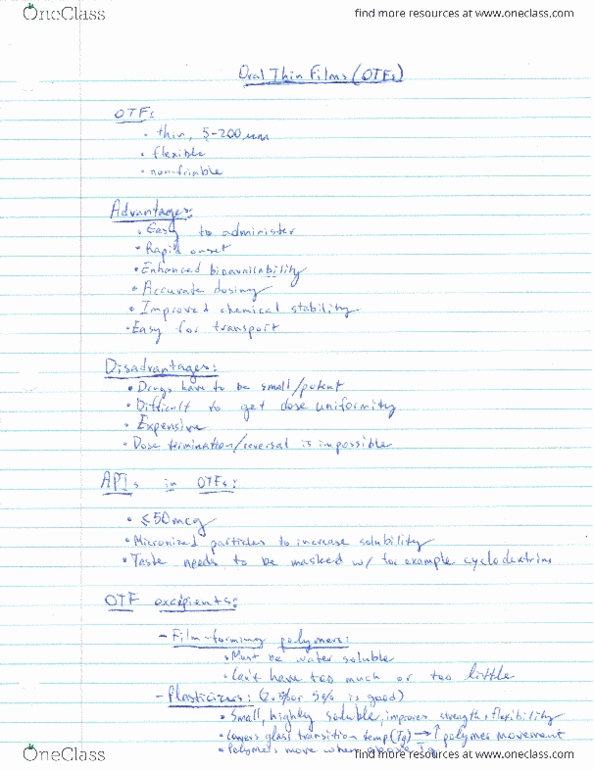 OneClass
find more resources at www.oneclass.com
Oral Thin Films (OTFs)
OTFs:
• thin, 5-200um
• flexible
• non-friable
Advantages:
• Easy to administer
• Rapid onset
• Enhanced bioavailability
• Accurate dosing
• Improved chemical stability
• Easy for transport
Disadvantages:
• Drugs have to be small/potent
• Difficult to get dose uniformity
• Expensive
• Dose termination/reversal is impossible
APIs in OTFs:
• ≤50mcg
• Micronized particles to increase solubility
• Taste needs to be masked w/ for example cyclodextrins
OTF excipients:
- Film-forming polymers:
• Must be water soluble
• Can't have too much or too little
- Plasticizers: ( or 5% is good)
• Small, highly soluble, improves strength + flexibility
• Lowers glass transition temp (Tg) → ↑ polymer movement
• Polymers move when above Tg
OneClass
find more resources at www.oneclass.com